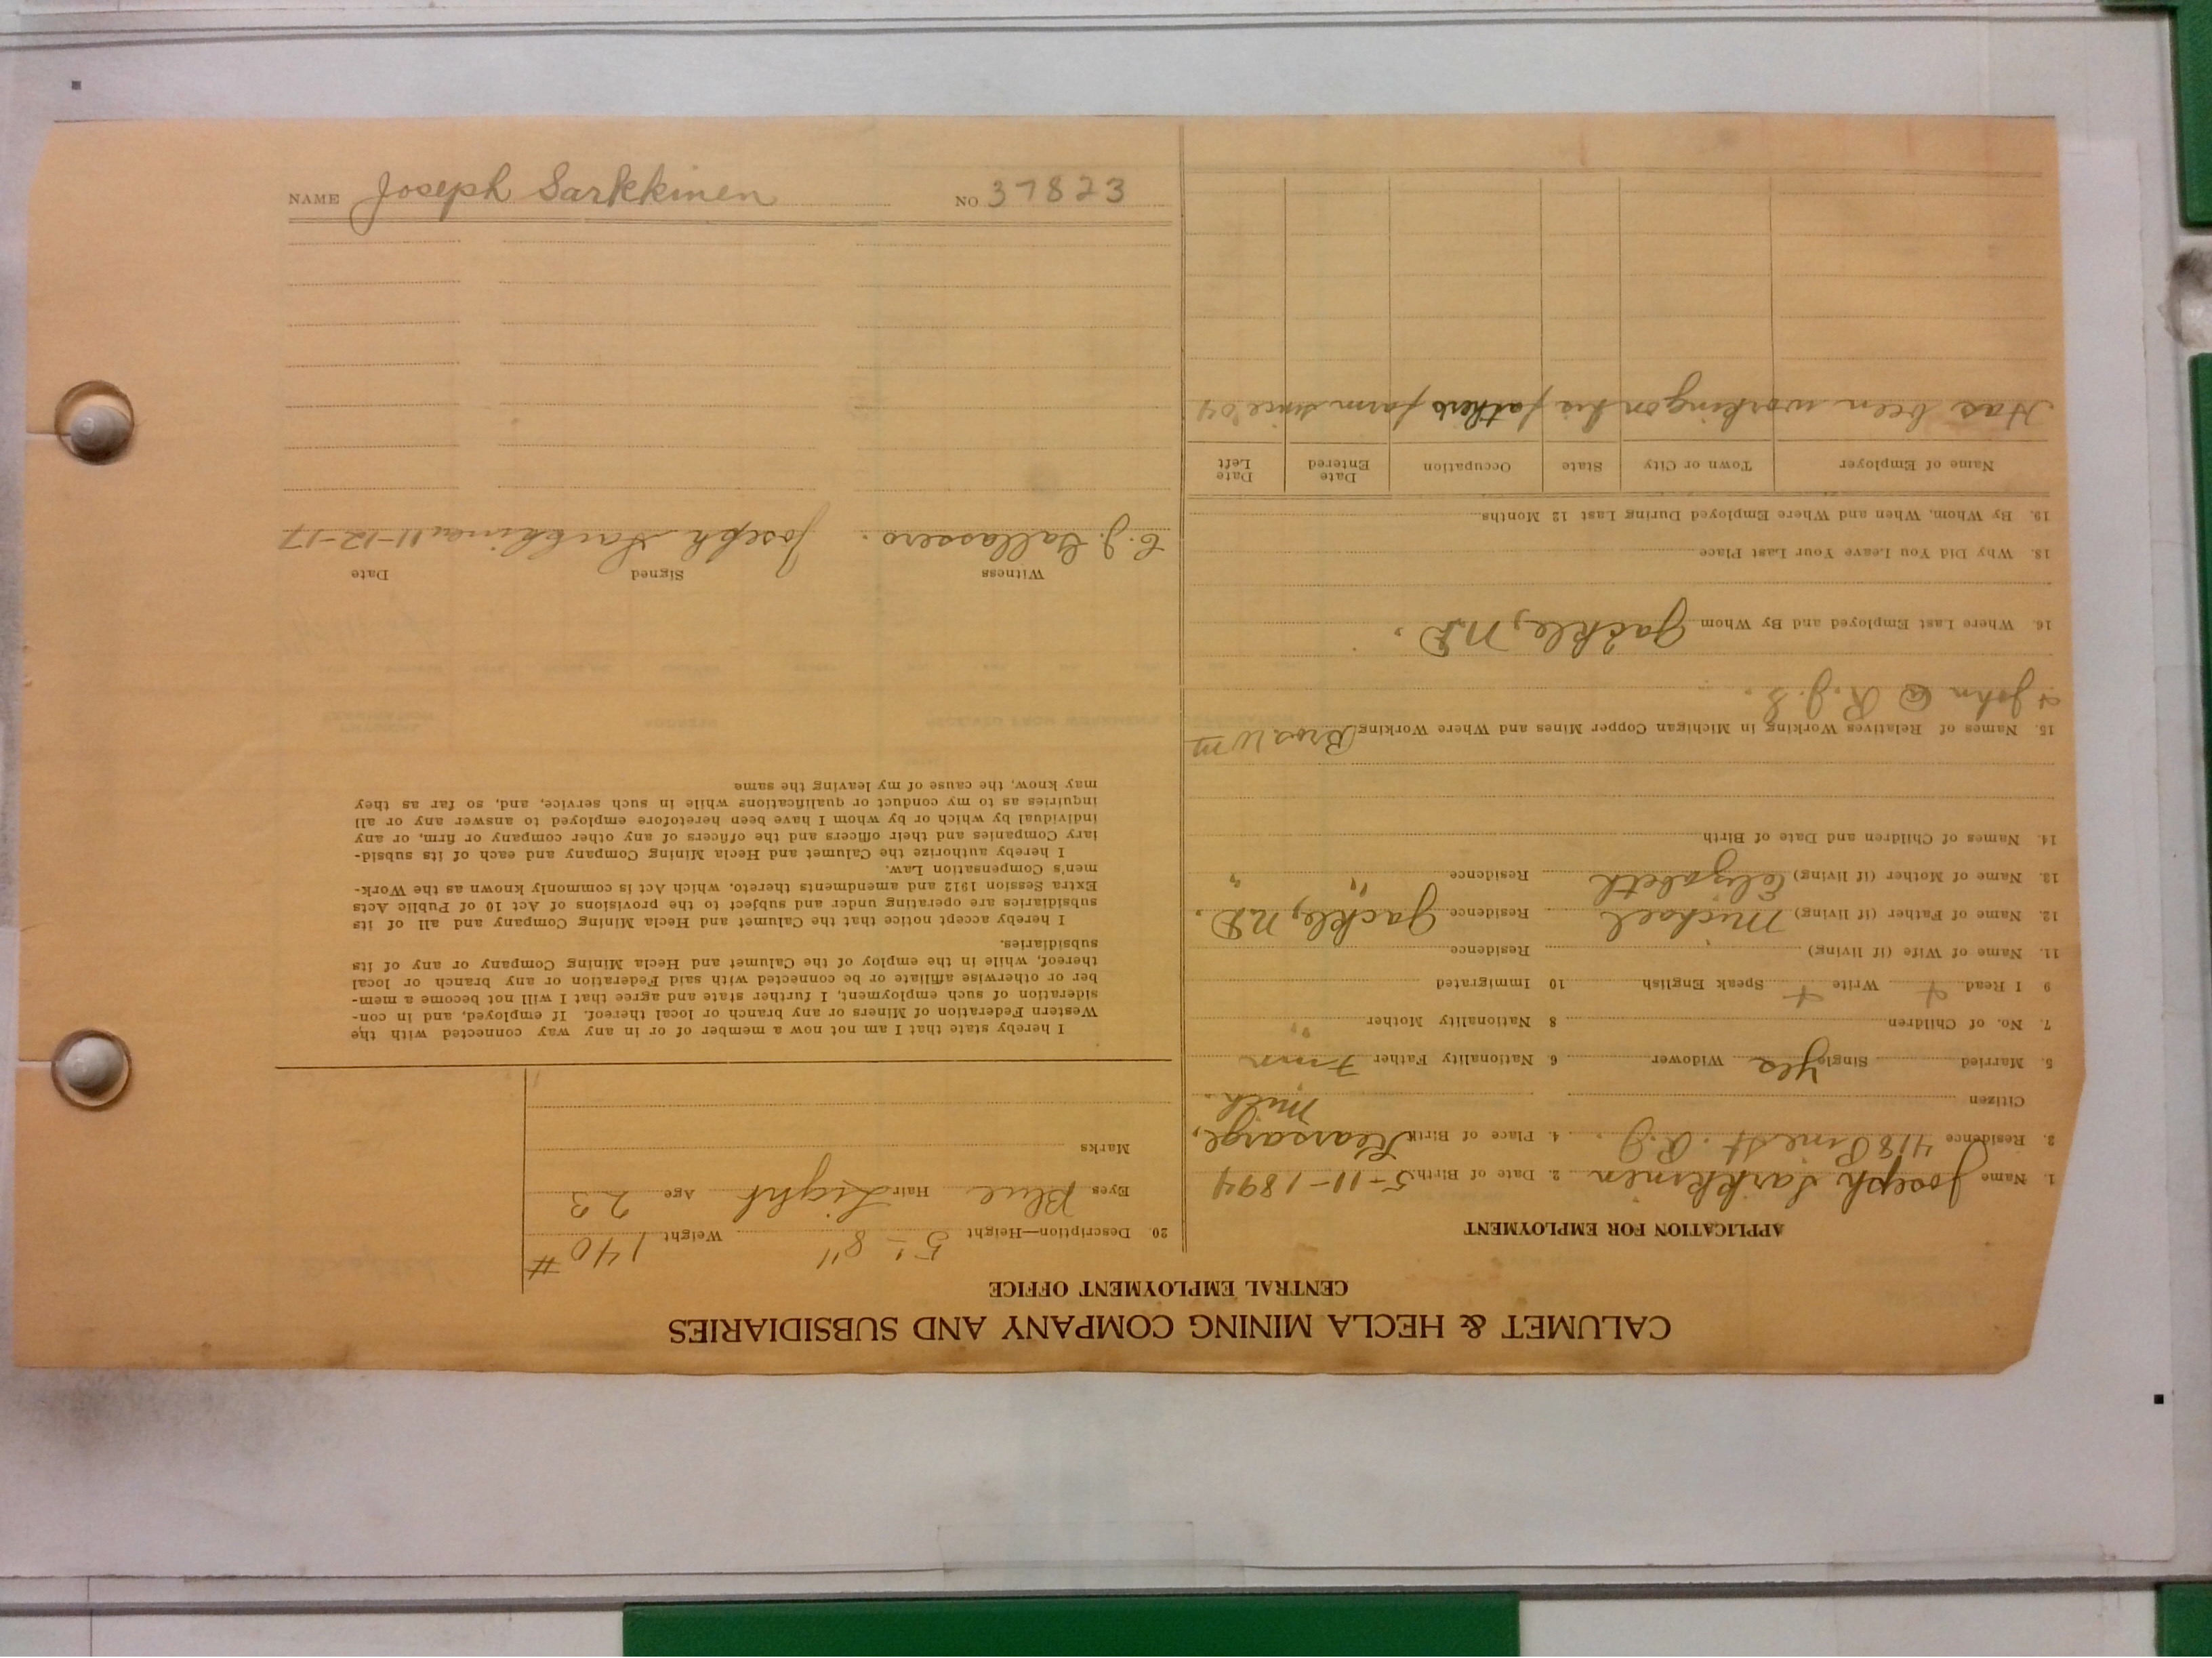 CALUMET & HECLA MINING COMPANY AND SUBSIDIARIES
CENTRAL EMPLOYMENT OFFICE
APPLICATION FOR EMPLOYMENT
1. Name Joseph Sarkkinen 2. Date of Birth 5-11-1894
3. Residence 418 Pine St. R.J. 4. Place of Birth Kearsarge, Mich.
Citizen
5. Married Single Yes Widower 6 Nationality Father Finn
7. No. of Children 8 Nationality Mother "
9 I Read + Write + Speak English 10 Immigrated
11. Name of Wife (if living) Residence
12. Name of Father (if living) Michael Residence Jackle, N.D.
13. Name of Mother (if living) Elizabeth Residence " "
14. Names of Children and Date of Birth
15. Names of Relatives Working in Michigan Copper Mines and Where Working Bros. Wm
+ John @ R.J.S.
16. Where Last Employed and By Whom Jackle, N.D.
18. Why Did You Leave Your Last Place
19. By Whom, When and Where Employed During Last 12 Months
Name of Employer Town or City State Occupation Date Entered Date Left
Has been working on his fathers farm since '04
20 Description—Height 5'-8" Weight 140 #
Eyes Blue Hair Light Age 23
Marks
I hereby state that I am not now a member of or in any way connected with the
Western Federation of Miners or any branch or local thereof. If employed, and in con-
sideration of such employment, I further state and agree that I will not become a mem-
ber or otherwise affiliate or be connected with said Federation or any branch or local
thereof, while in the employ of the Calumet and Hecla Mining Company or any of its
subsidiaries.
I hereby accept notice that the Calumet and Hecla Mining Company and all of its
subsidiaries are operating under and subject to the provisions of Act 10 of Public Acts
Extra Session 1912 and amendments thereto, which Act is commonly known as the Work-
men's Compensation Law.
I hereby authorize the Calumet and Hecla Mining Company and each of its subsid-
iary Companies and their officers and the officers of any other company or firm, or any
individual by which or by whom I have been heretofore employed to answer any or all
inquiries as to my conduct or qualifications while in such service, and, so far as they
may know, the cause of my leaving the same
Witness Signed Date
C. J. Gallassero. Joseph Sarkkinen 11-12-17
NAME Joseph Sarkkinen NO 37823